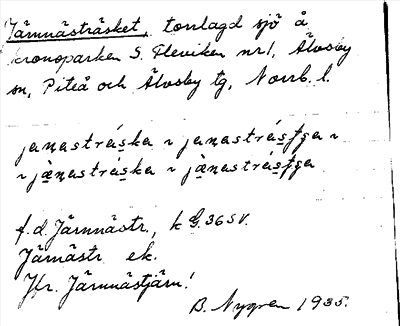 Järnnästräsket, torrlagd sjö å
kronoparken S. Fleviken nr 1, Älvsby
sn, Piteå och Älvsby tg, Norrb. l.
janastráska ~ janastrástsa ~
~ jànastráska ~ jànastrástsa
f. d. Järnnästr., k G. 36 SV.
Järnästr. ek.
Jfr. Järnnästjärn!
B. Nygren 1935.